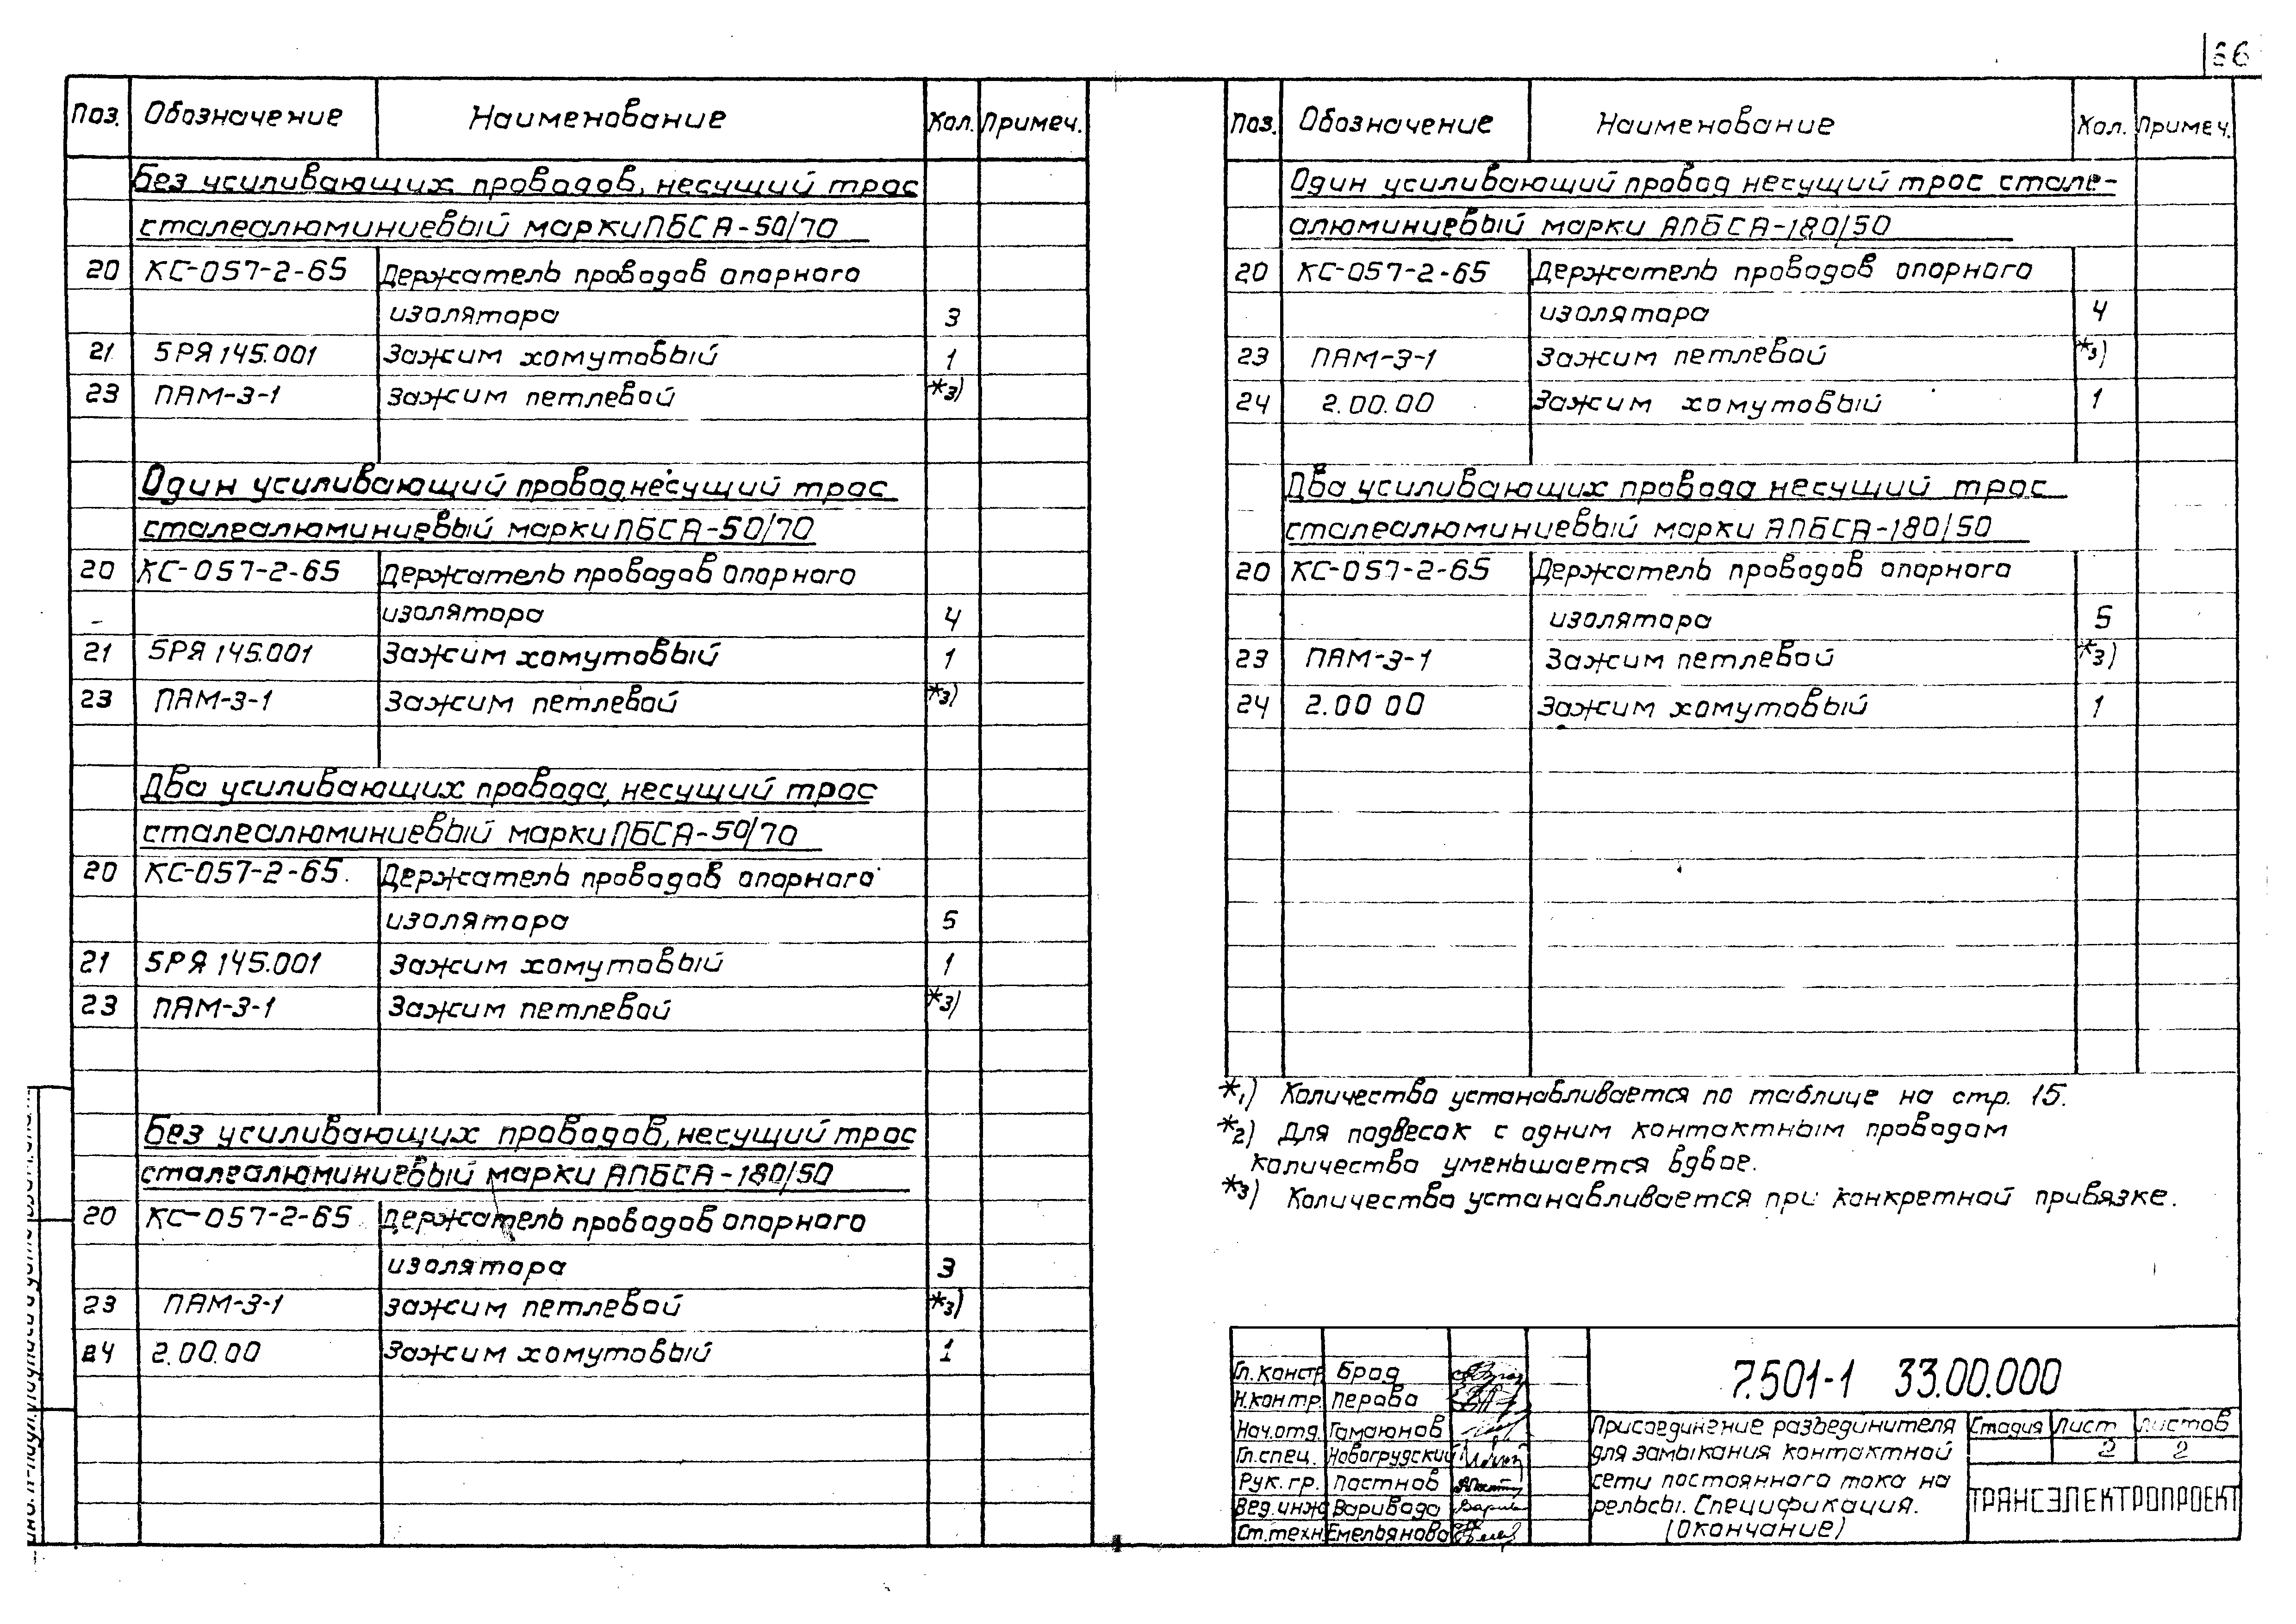 66
Поз. Обозначение Наименование Кол. Примеч.
Без усиливающих проводов, несущий трос
сталеалюминиевый марки ПБСА-50/70
20 КС-057-2-65 Держатель проводов опорного
изолятора 3
21 5РЯ 145.001 Зажим хомутовый 1
23 ПАМ-3-1 Зажим петлевой *3)
Один усиливающий провод несущий трос
сталеалюминиевый марки ПБСА-50/70
20 КС-057-2-65 Держатель проводов опорного
изолятора 4
21 5РЯ 145.001 Зажим хомутовый 1
23 ПАМ-3-1 Зажим петлевой *3)
Два усиливающих провода, несущий трос
сталеалюминиевый марки ПБСА-50/70
20 КС-057-2-65. Держатель проводов опорного
изолятора 5
21 5РЯ 145.001 Зажим хомутовый 1
23 ПАМ-3-1 Зажим петлевой *3)
Без усиливающих проводов, несущий трос
сталеалюминиевый марки АПБСА-180/50
20 КС-057-2-65 Держатель проводов опорного
изолятора 3
23 ПАМ-3-1 зажим петлевой *3)
24 2.00.00 Зажим хомутовый 1
Поз. Обозначение Наименование Кол. Примеч.
Один усиливающий провод несущий трос стале-
алюминиевый марки АПБСА-180/50
20 КС-057-2-65 Держатель проводов опорного
изолятора 4
23 ПАМ-3-1 Зажим петлевой *3)
24 2.00.00 Зажим хомутовый 1
Два усиливающих провода несущий трос
сталеалюминиевый марки АПБСА-180/50
20 КС-057-2-65 Держатель проводов опорного
изолятора 5
23 ПАМ-3-1 Зажим петлевой *3)
24 2.00 00 Зажим хомутовый 1
*1) Количество устанавливается по таблице на стр. 15.
*2) Для подвесок с одним контактным проводом
количество уменьшается вдвое.
*3) Количество устанавливается при конкретной привязке.
Гл. констр. Брод
Н.контр. Перова
Нач.отд. Гамаюнов
Гл.спец. Новогрудский
Рук. гр. Постнов
Вед.инж Варивода
Ст.техн Емельянова
7.501-1 33.00.000
Присоединение разъединителя
для замыкания контактной
сети постоянного тока на
рельсы. Спецификация.
(Окончание)
Стадия Лист Листов
2 2
ТРАНСЭЛЕКТРОПРОЕКТ